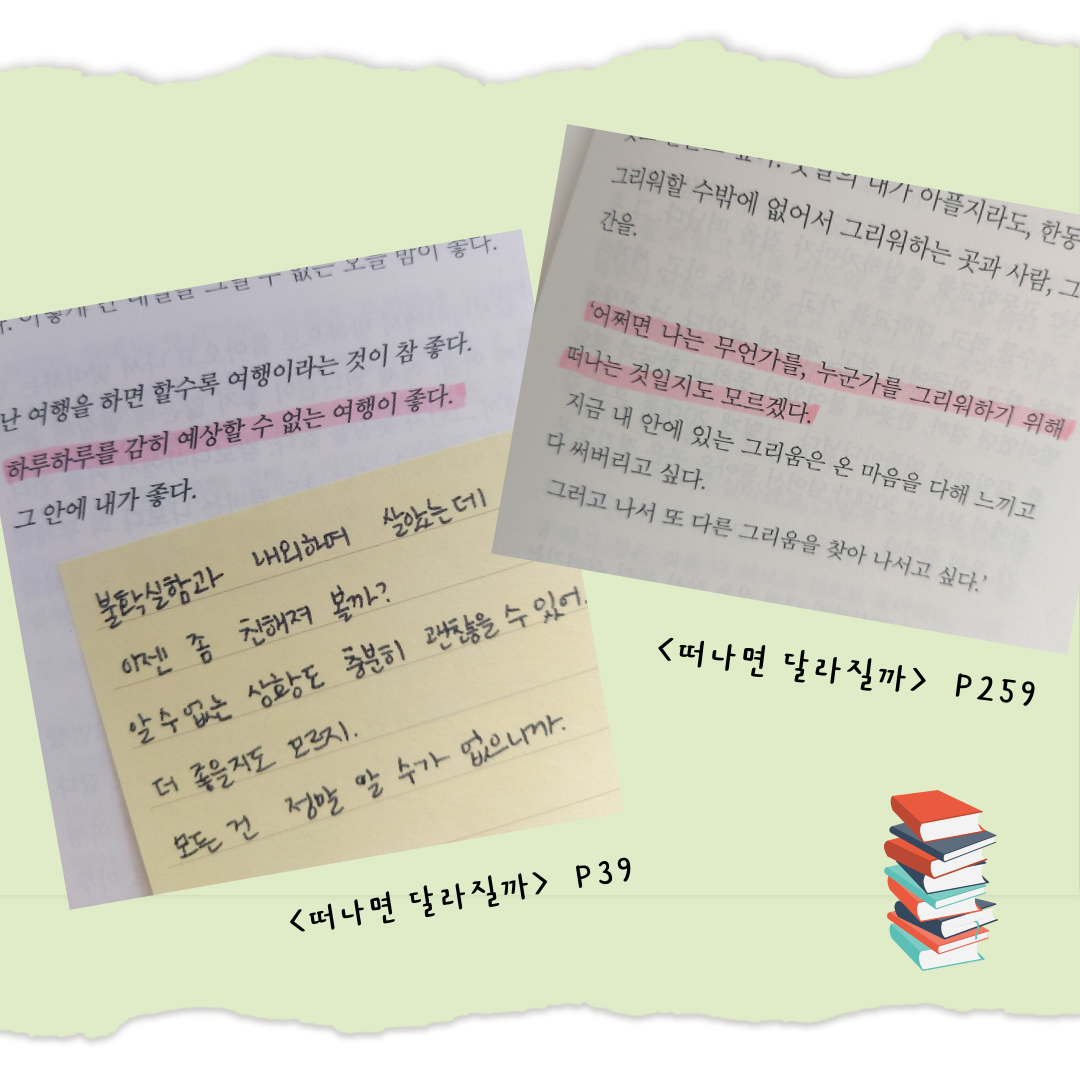 수 없는 오늘 밤이 좋다.
난 여행을 하면 할수록 여행이라는 것이 참 좋다.
하루하루를 감히 예상할 수 없는 여행이 좋다.
그 안에 내가 좋다.
불확실함과 내외하며 살았는데
이젠 좀 친해져 볼까?
알 수 없는 상황도 충분히 괜찮을 수 있어.
더 좋을지도 모르지.
모든 건 정말 알 수가 없으니까.
<떠나면 달라질까> P39
내가 아플지라도, 한동
그리워할 수밖에 없어서 그리워하는 곳과 사람, 그
간을.
‘어쩌면 나는 무언가를, 누군가를 그리워하기 위해
떠나는 것일지도 모르겠다.
지금 내 안에 있는 그리움은 온 마음을 다해 느끼고
다 써버리고 싶다.
그러고 나서 또 다른 그리움을 찾아 나서고 싶다.’
<떠나면 달라질까> P259